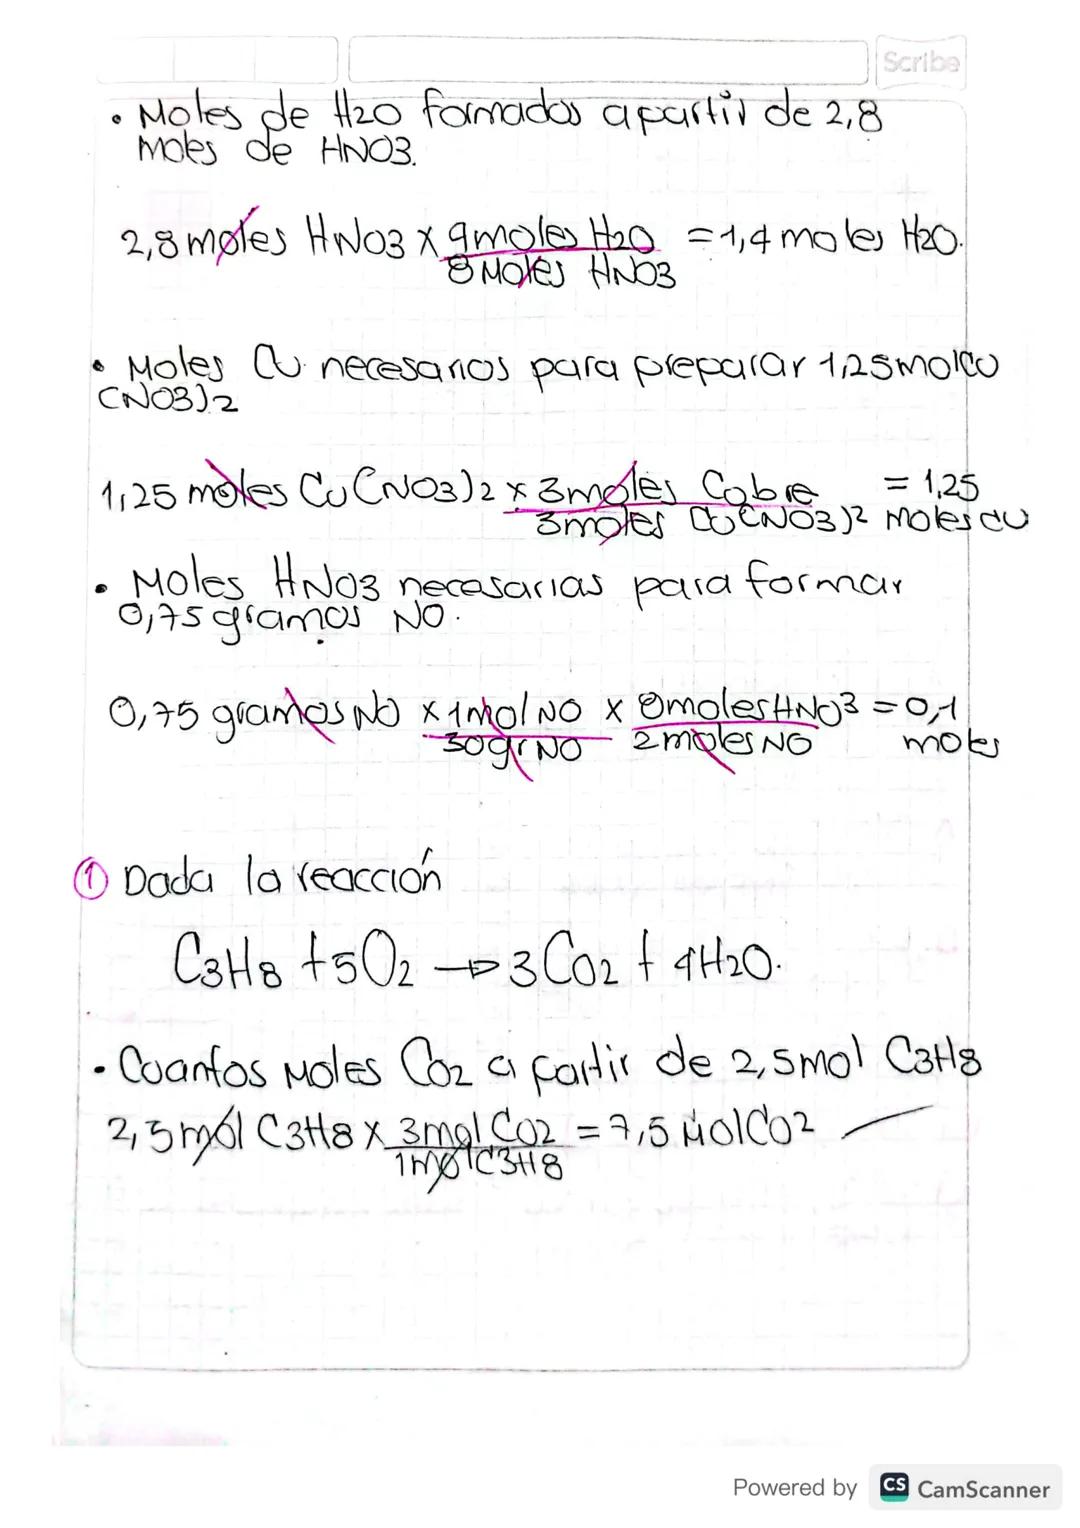 Scribe
• Moles de H2O formados apartir de 2,8
moles de HNO3.
2,8 moles HNO3 x 4moles H2O = 1,4 moles H2O.
8 Moles HNO3
• Moles Cu necesarios para preparar 1,25molCu
(NO3)2
1,25 moles Cu(NO3)2 x 3moles Cobre = 1,25
3moles Cu(NO3)2 moles cu
• Moles HNO3 necesarias para formar
0,75 gramos NO.
0,75 gramos NO x 1mol NO x 8molesHNO3 = 0,1
30gr NO 2moles NO moles
① Dada la reacción
C3H8 + 5O2 → 3CO2 + 4H2O.
• Cuantos Moles CO2 a partir de 2,5mol C3H8
2,5 mol C3H8 x 3mol CO2 = 7,5 MolCO2
1molC3H8
Powered by CS CamScanner